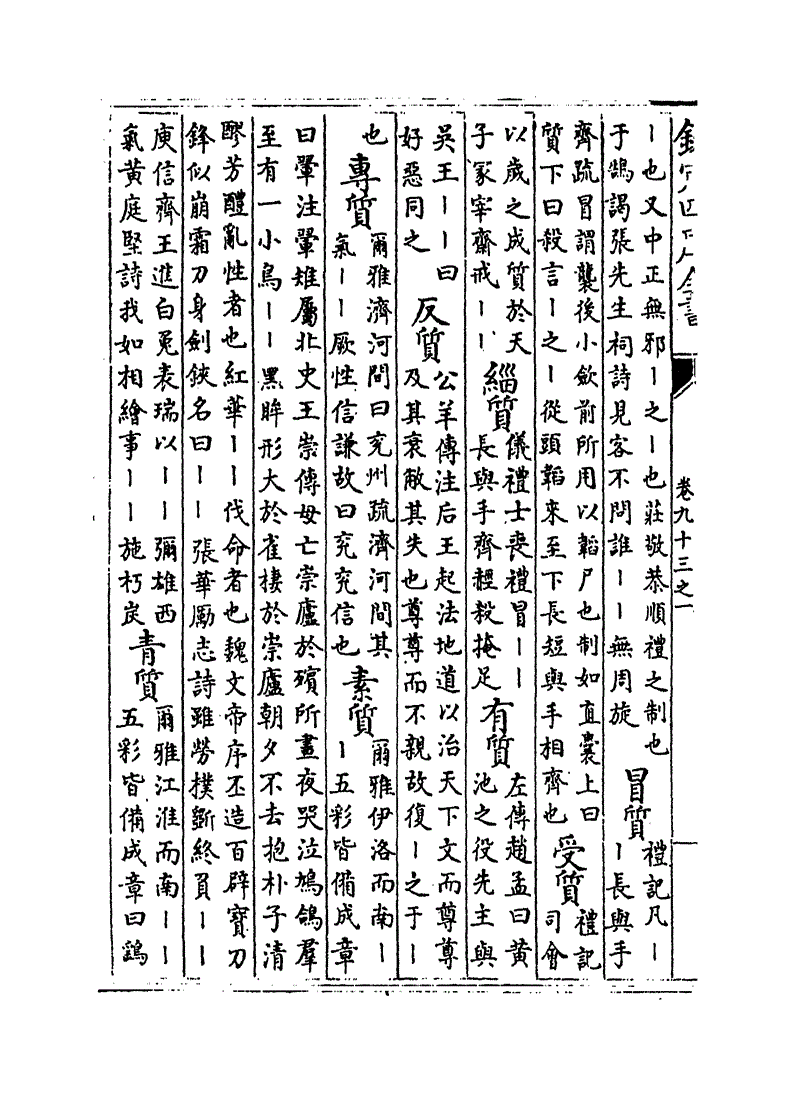 欽定四庫全書
卷九十三之一
｜也又中正無邪｜之｜也莊敬恭順禮之制也
于鵠謁張先生祠詩見客不問誰｜｜無周旋
冒質
禮記凡｜
｜長與手
齊疏冒謂襲後小歛前所用以韜尸也制如直囊上曰
質下曰殺言｜之｜從頭韜來至下長短與手相齊也
受質
禮記
司會
以歲之成質於天
子冢宰齋戒｜｜
緇質
儀禮士喪禮冒｜｜
長與手齊䞓殺掩足
有質
左傳趙孟曰黃
池之役先主與
吳王｜｜曰
好惡同之
反質
公羊傳注后王起法地道以治天下文而尊尊
及其衰敝其失也尊尊而不親故復｜之于｜
也
專質
爾雅濟河間曰兖州疏濟河間其
氣｜｜厥性信謙故曰兖兖信也
素質
爾雅伊洛而南｜
｜五彩皆備成章
曰翬注翬雉屬北史王崇傳母亡崇廬於殯所晝夜哭泣鳩鴿羣
至有一小鳥｜｜黑眸形大於雀棲於崇廬朝夕不去抱朴子清
醪芳醴亂性者也紅華｜｜伐命者也魏文帝序丕造百辟寶刀
鋒似崩霜刀身劍鋏名曰｜｜ 張華勵志詩雖勞樸斵終負｜｜
庾信齊王進白兔表瑞以｜｜彌雄西
氣黃庭堅詩我如相繪事｜｜施朽炭
青質
爾雅江淮而南｜｜
五彩皆備成章曰鷂